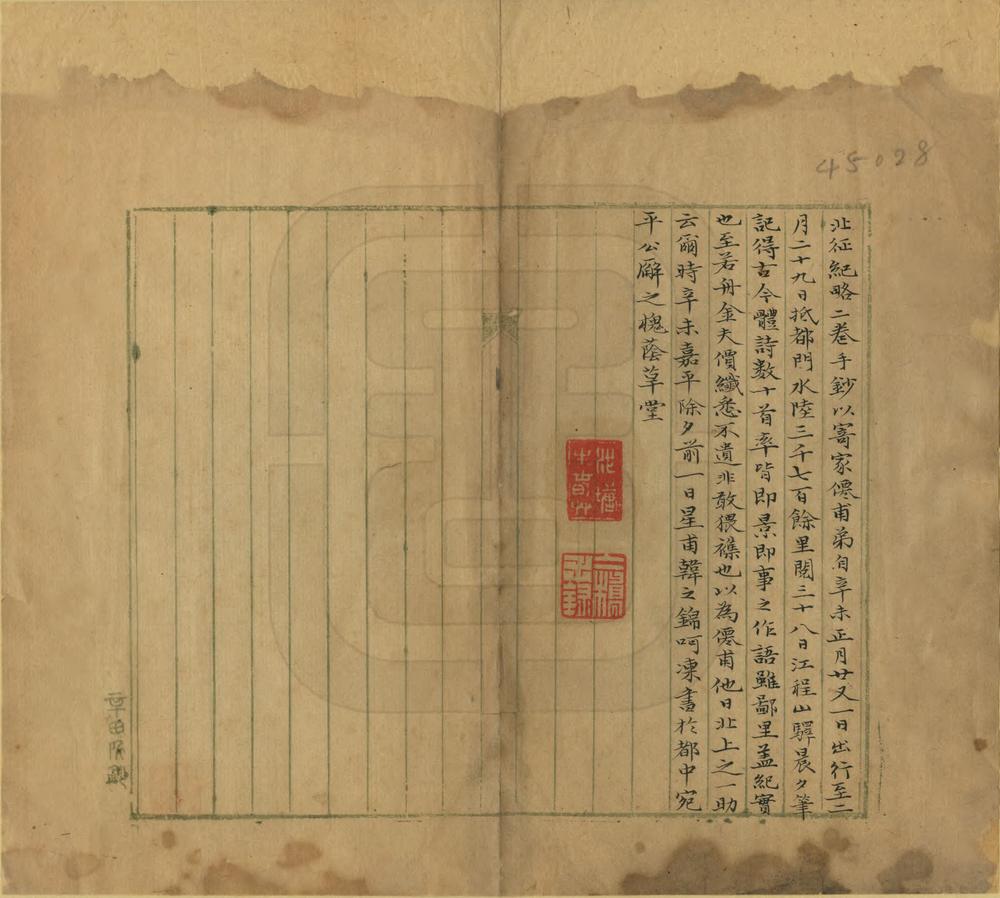 北征紀略二卷手鈔以寄家僊甫弟自辛未正月廿又一日出行至二
月二十九日抵都門水陸三千七百餘里閱三十八日江程山驛晨夕筆
記得古今體詩數十首率皆即景即事之作語雖鄙里盖紀實
也至若舟金夫價纖悉不遺非敢猥襍也以為僊甫他日北上之一助
云爾時辛未嘉平除夕前一日星甫韓之錦呵凍書於都中宛
平公廨之槐蔭草堂
45028